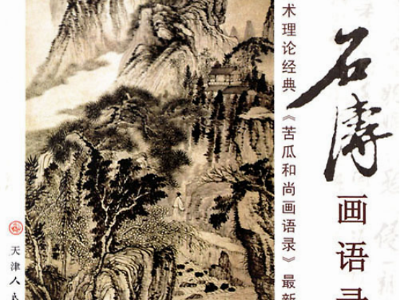 石涛
画语录
术理论经典《苦瓜和尚画语录》最新
天津人